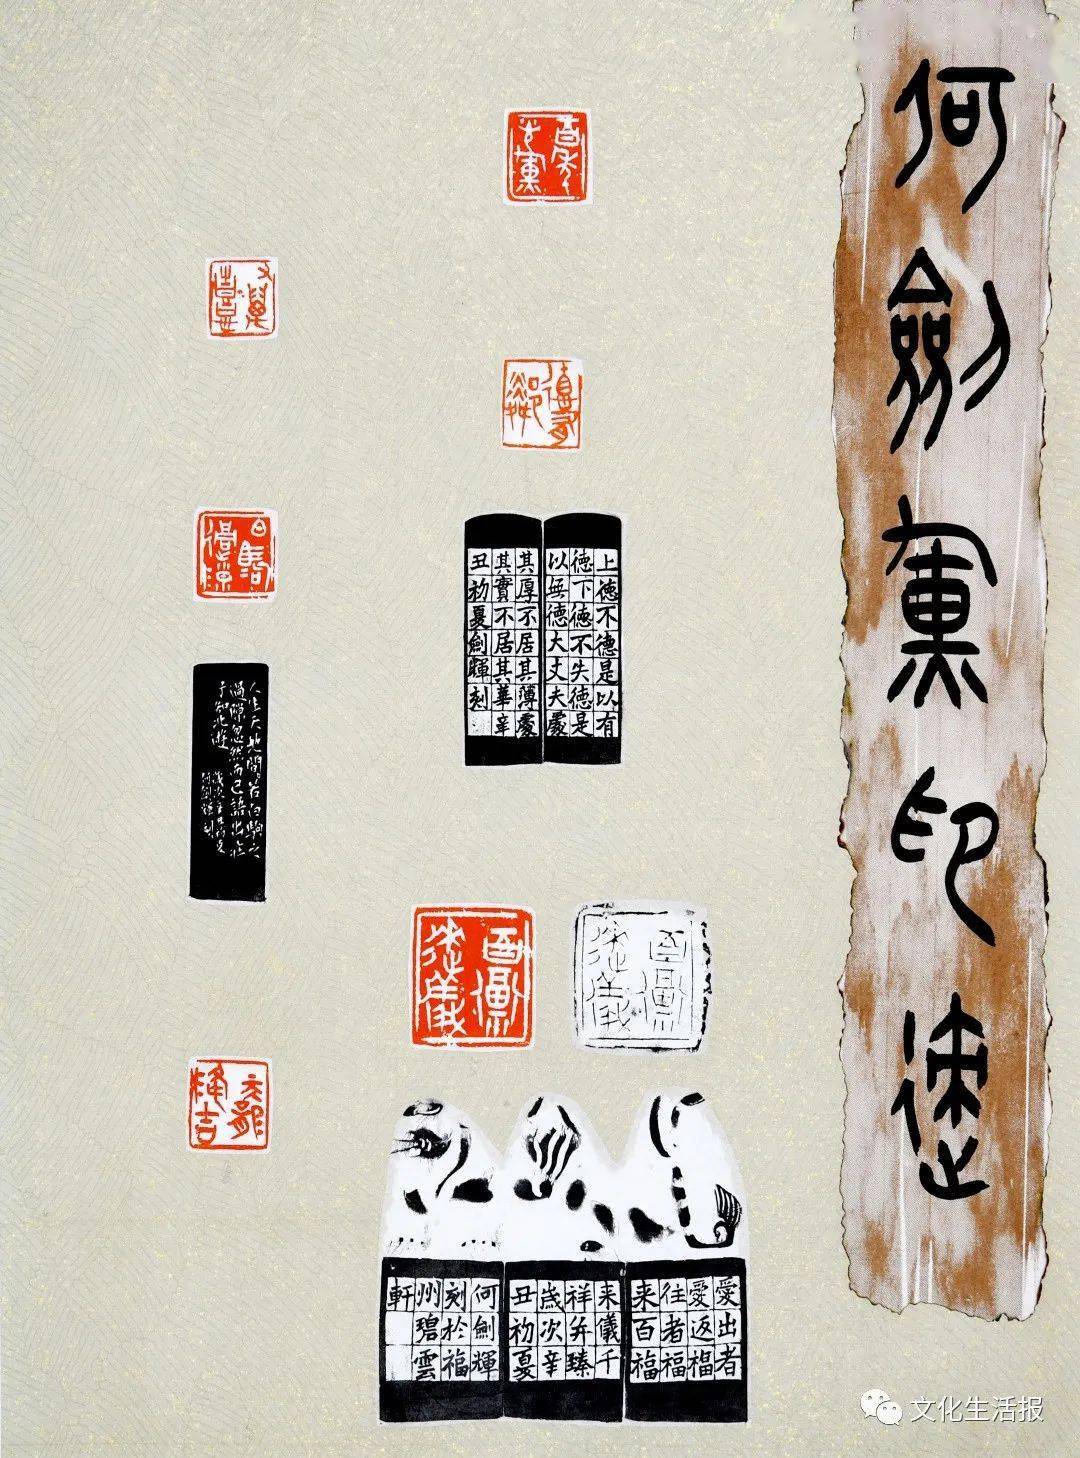 何劍煇印迹
上德不德是以有
德下德不失德是
以無德大丈夫處
其厚不居其薄處
其實不居其華辛
丑初夏劍輝刻
白駒
過隙
人生天地間若白駒之
過隙忽然而已語出莊
子知北遊
歲次辛丑初夏
何劍輝刻
百福
来儀
百福
来儀
愛出者
愛返福
往者福
来百福
来儀千
祥并臻
歲次辛
丑初夏
何劍輝
刻於福
州碧雲
軒
文化生活报